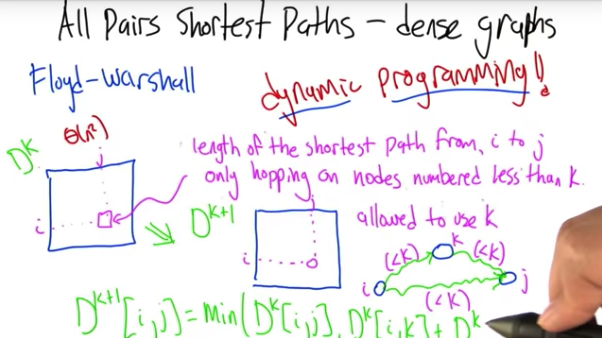 All Pairs Shortest Paths – dense graphs
Floyd-Warshall
dynamic programming!
Θ(n²)
D^k
j
i
length of the shortest path from i to j
only hopping on nodes numbered less than k.
D^k+1
j
i
allowed to use k
(<k) k (<k)
i j
(<k)
D^k+1[i,j] = min(D^k[i,j], D^k[i,k] + D^k